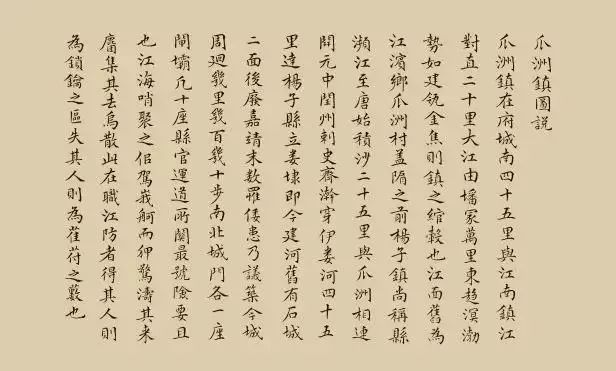 瓜洲鎮圖説
瓜洲鎮在府城南四十五里與江南鎮江
對直二十里大江由嶓冢萬里東趨溟渤
勢如建瓴金焦則鎮之綰轂也江面舊為
江濱鄉瓜洲村蓋隋之前楊子鎮尚稱縣
瀕江至唐始積沙二十五里與瓜洲相連
開元中閏州刺史齊澣穿伊婁河四十五
里達楊子縣立婁埭即今建河舊有石城
二面後廢嘉靖末数罹倭患乃議築今城
周廻幾里幾百幾十步南北城門各一座
閘壩凢十座縣官運道所關最號險要且
也江海哨聚之佀駕我舸而狎驚濤其来
麕集其去鳥散此在職江防者得其人則
為鎖鑰之區失其人則為萑苻之藪也